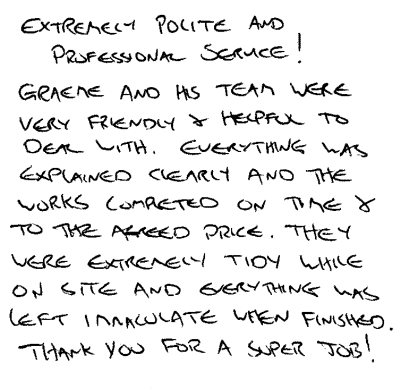 EXTREMELY POLITE AND
PROFESSIONAL SERVICE!
GRAEME AND HIS TEAM WERE
VERY FRIENDLY & HELPFUL TO
DEAL WITH. EVERYTHING WAS
EXPLAINED CLEARLY AND THE
WORKS COMPLETED ON TIME &
TO THE AGREED PRICE. THEY
WERE EXTREMELY TIDY WHILE
ON SITE AND EVERYTHING WAS
LEFT IMMACULATE WHEN FINISHED.
THANK YOU FOR A SUPER JOB!